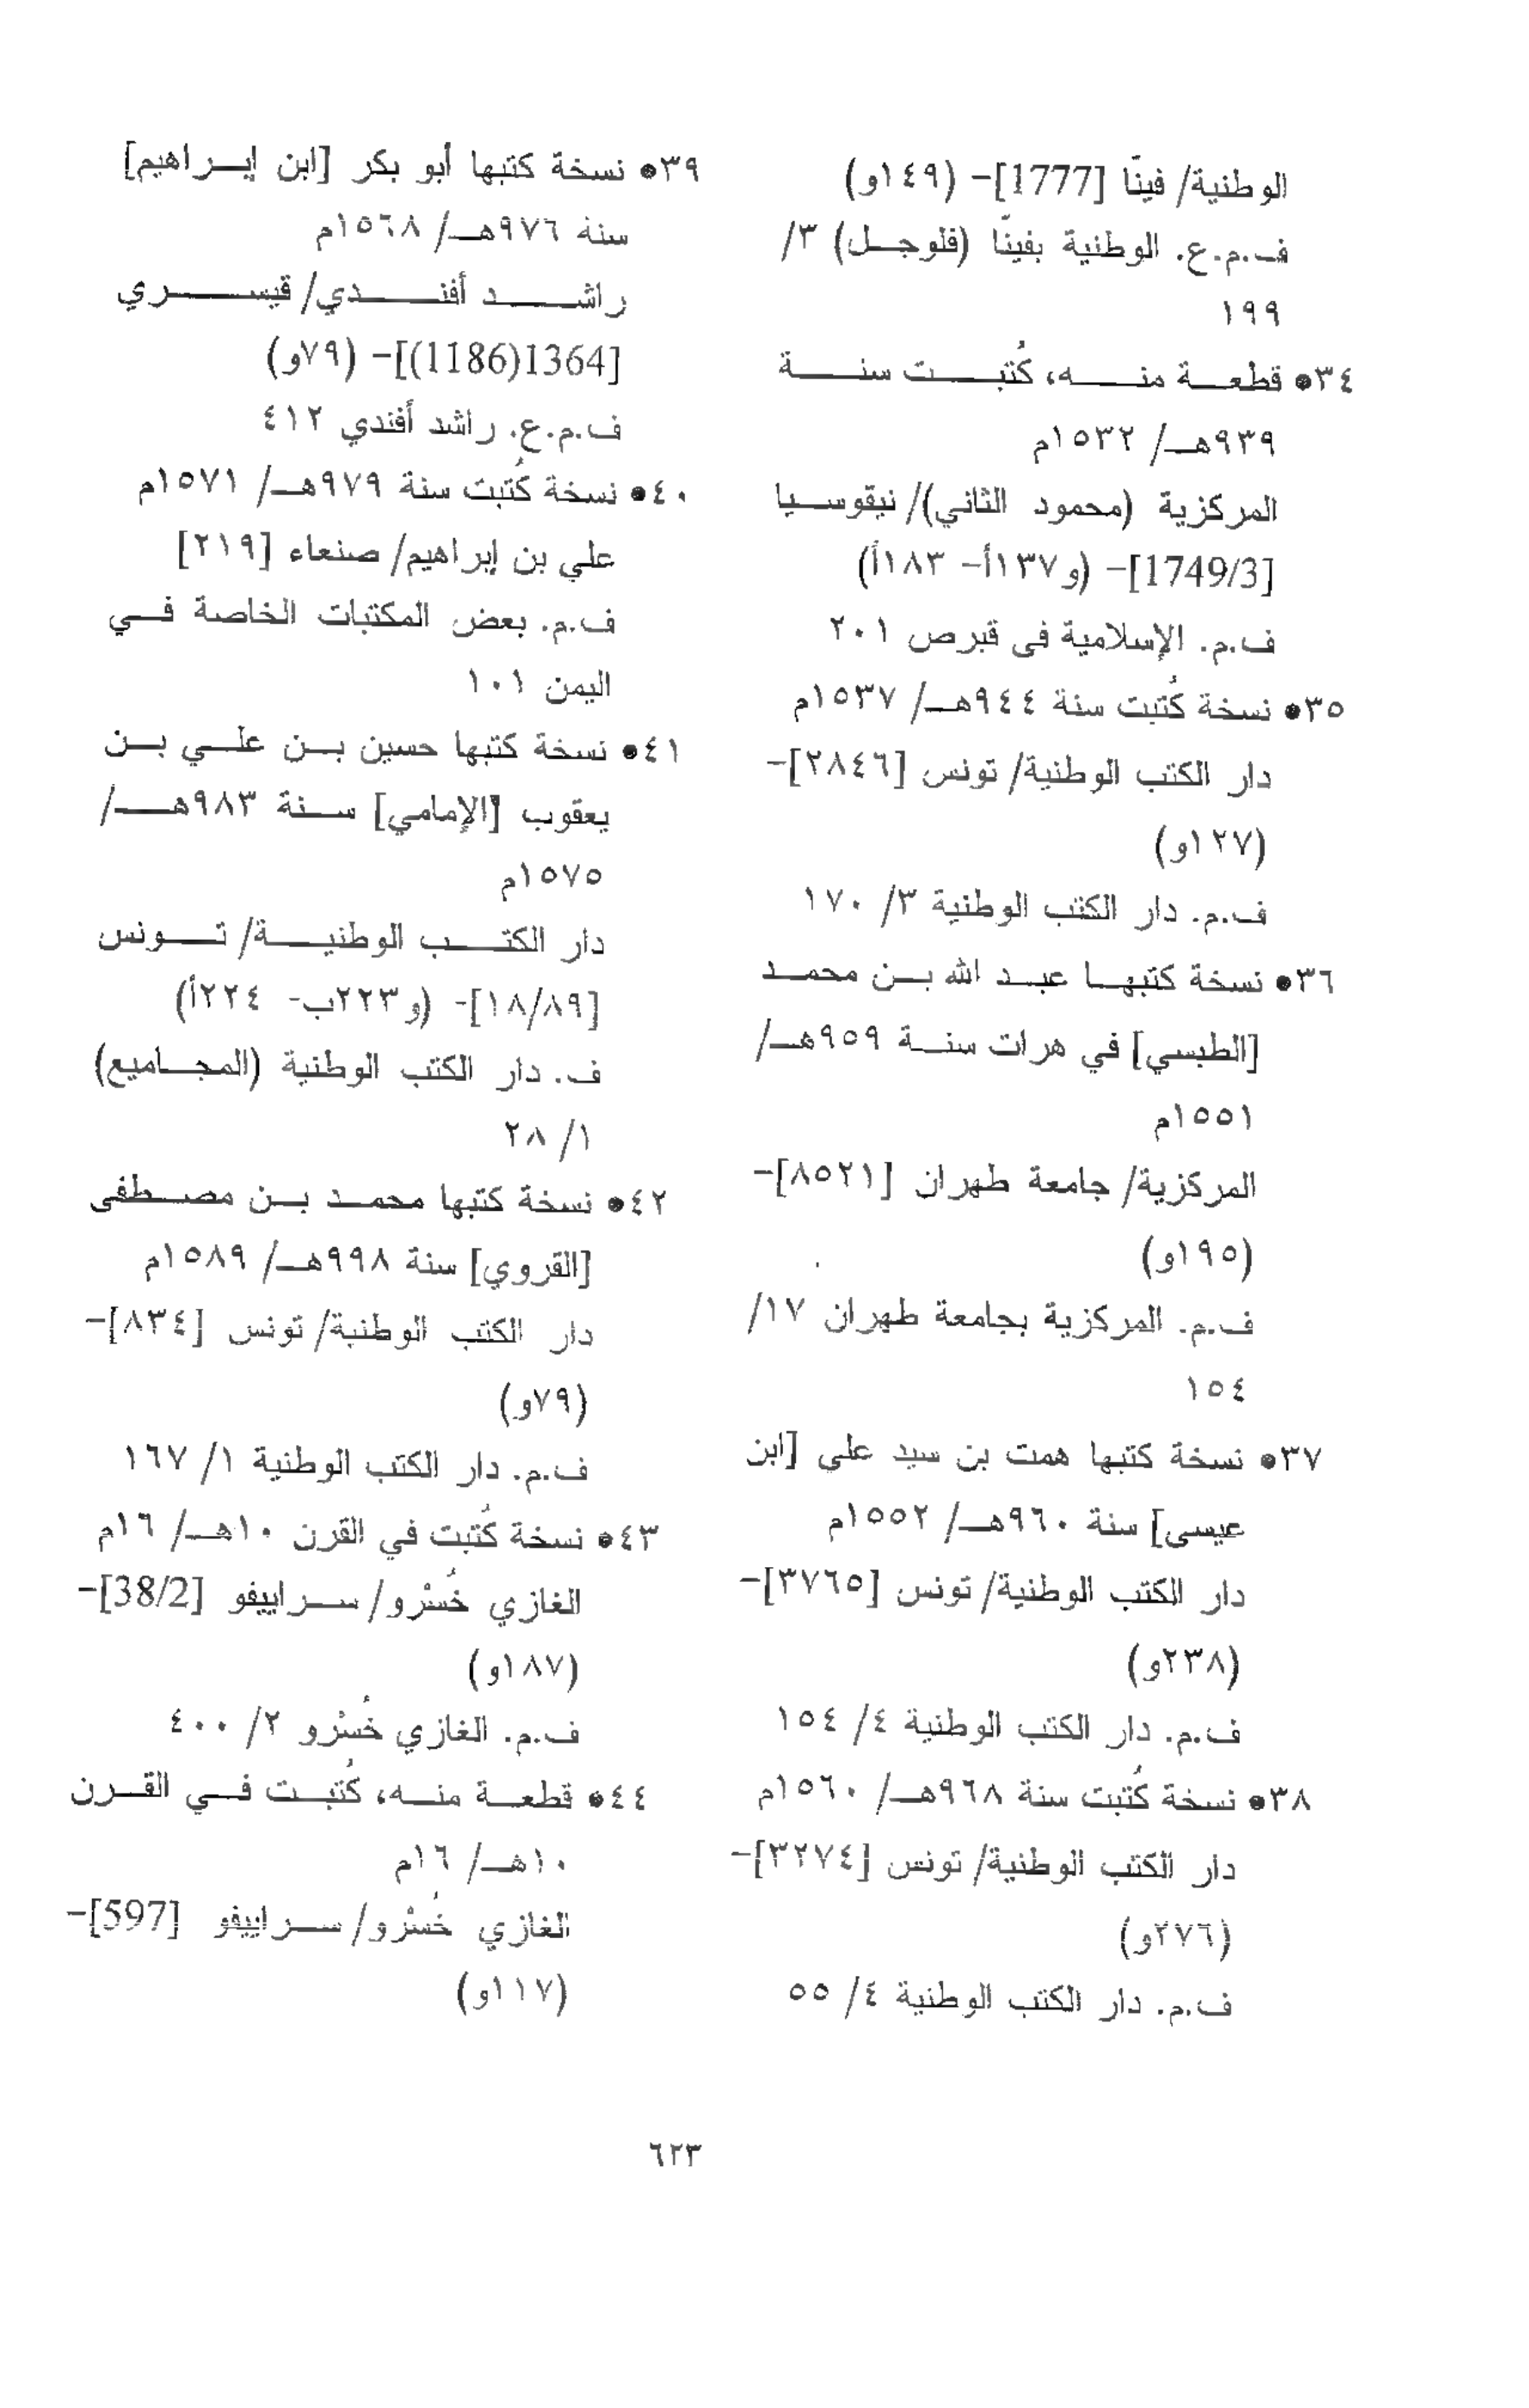 الوطنية/ فينّا [1777]- (١٤٩و)
ف.م.ع. الوطنية بفينّا (فلوجل) ٣/
١٩٩
٣٤● قطعة منه، كُتبت سنة
٩٣٩هـ/ ١٥٣٢م
المركزية (محمود الثاني)/ نيقوسيا
[1749/3]- (و١٣٧أ- ١٨٣أ)
ف.م. الإسلامية فى قبرص ٢٠١
٣٥● نسخة كُتبت سنة ٩٤٤هـ/ ١٥٣٧م
دار الكتب الوطنية/ تونس [٢٨٤٦]-
(١٢٧و)
ف.م. دار الكتب الوطنية ٣/ ١٧٠
٣٦● نسخة كتبها عبد الله بن محمد
[الطبسي] في هرات سنة ٩٥٩هـ/
١٥٥١م
المركزية/ جامعة طهران [٨٥٢١]-
(١٩٥و)
ف.م. المركزية بجامعة طهران ١٧/
١٥٤
٣٧● نسخة كتبها همت بن سيد علي [ابن
عيسى] سنة ٩٦٠هـ/ ١٥٥٢م
دار الكتب الوطنية/ تونس [٣٧٦٥]-
(٢٣٨و)
ف.م. دار الكتب الوطنية ٤/ ١٥٤
٣٨● نسخة كُتبت سنة ٩٦٨هـ/ ١٥٦٠م
دار الكتب الوطنية/ تونس [٣٢٧٤]-
(٢٧٦و)
ف.م. دار الكتب الوطنية ٤/ ٥٥
٣٩● نسخة كتبها أبو بكر [ابن إبراهيم]
سنة ٩٧٦هـ/ ١٥٦٨م
راشد أفندي/ قيسري
[1364(1186)]- (٧٩و)
ف.م.ع. راشد أفندي ٤١٢
٤٠● نسخة كُتبت سنة ٩٧٩هـ/ ١٥٧١م
علي بن إبراهيم/ صنعاء [٢١٩]
ف.م. بعض المكتبات الخاصة في
اليمن ١٠١
٤١● نسخة كتبها حسين بن علي بن
يعقوب [الإمامي] سنة ٩٨٣هـ/
١٥٧٥م
دار الكتب الوطنية/ تونس
[١٨/٨٩]- (و٢٢٣ب- ٢٢٤أ)
ف. دار الكتب الوطنية (المجاميع)
١/ ٢٨
٤٢● نسخة كتبها محمد بن مصطفى
[القروي] سنة ٩٩٨هـ/ ١٥٨٩م
دار الكتب الوطنية/ تونس [٨٣٤]-
(٧٩و)
ف.م. دار الكتب الوطنية ١/ ١٦٧
٤٣● نسخة كُتبت في القرن ١٠هـ/ ١٦م
الغازي خُسْرو/ سراييفو [38/2]-
(١٨٧و)
ف.م. الغازي خُسْرو ٢/ ٤٠٠
٤٤● قطعة منه، كُتبت في القرن
١٠هـ/ ١٦م
الغازي خُسْرو/ سراييفو [597]-
(١١٧و)
٦٢٣